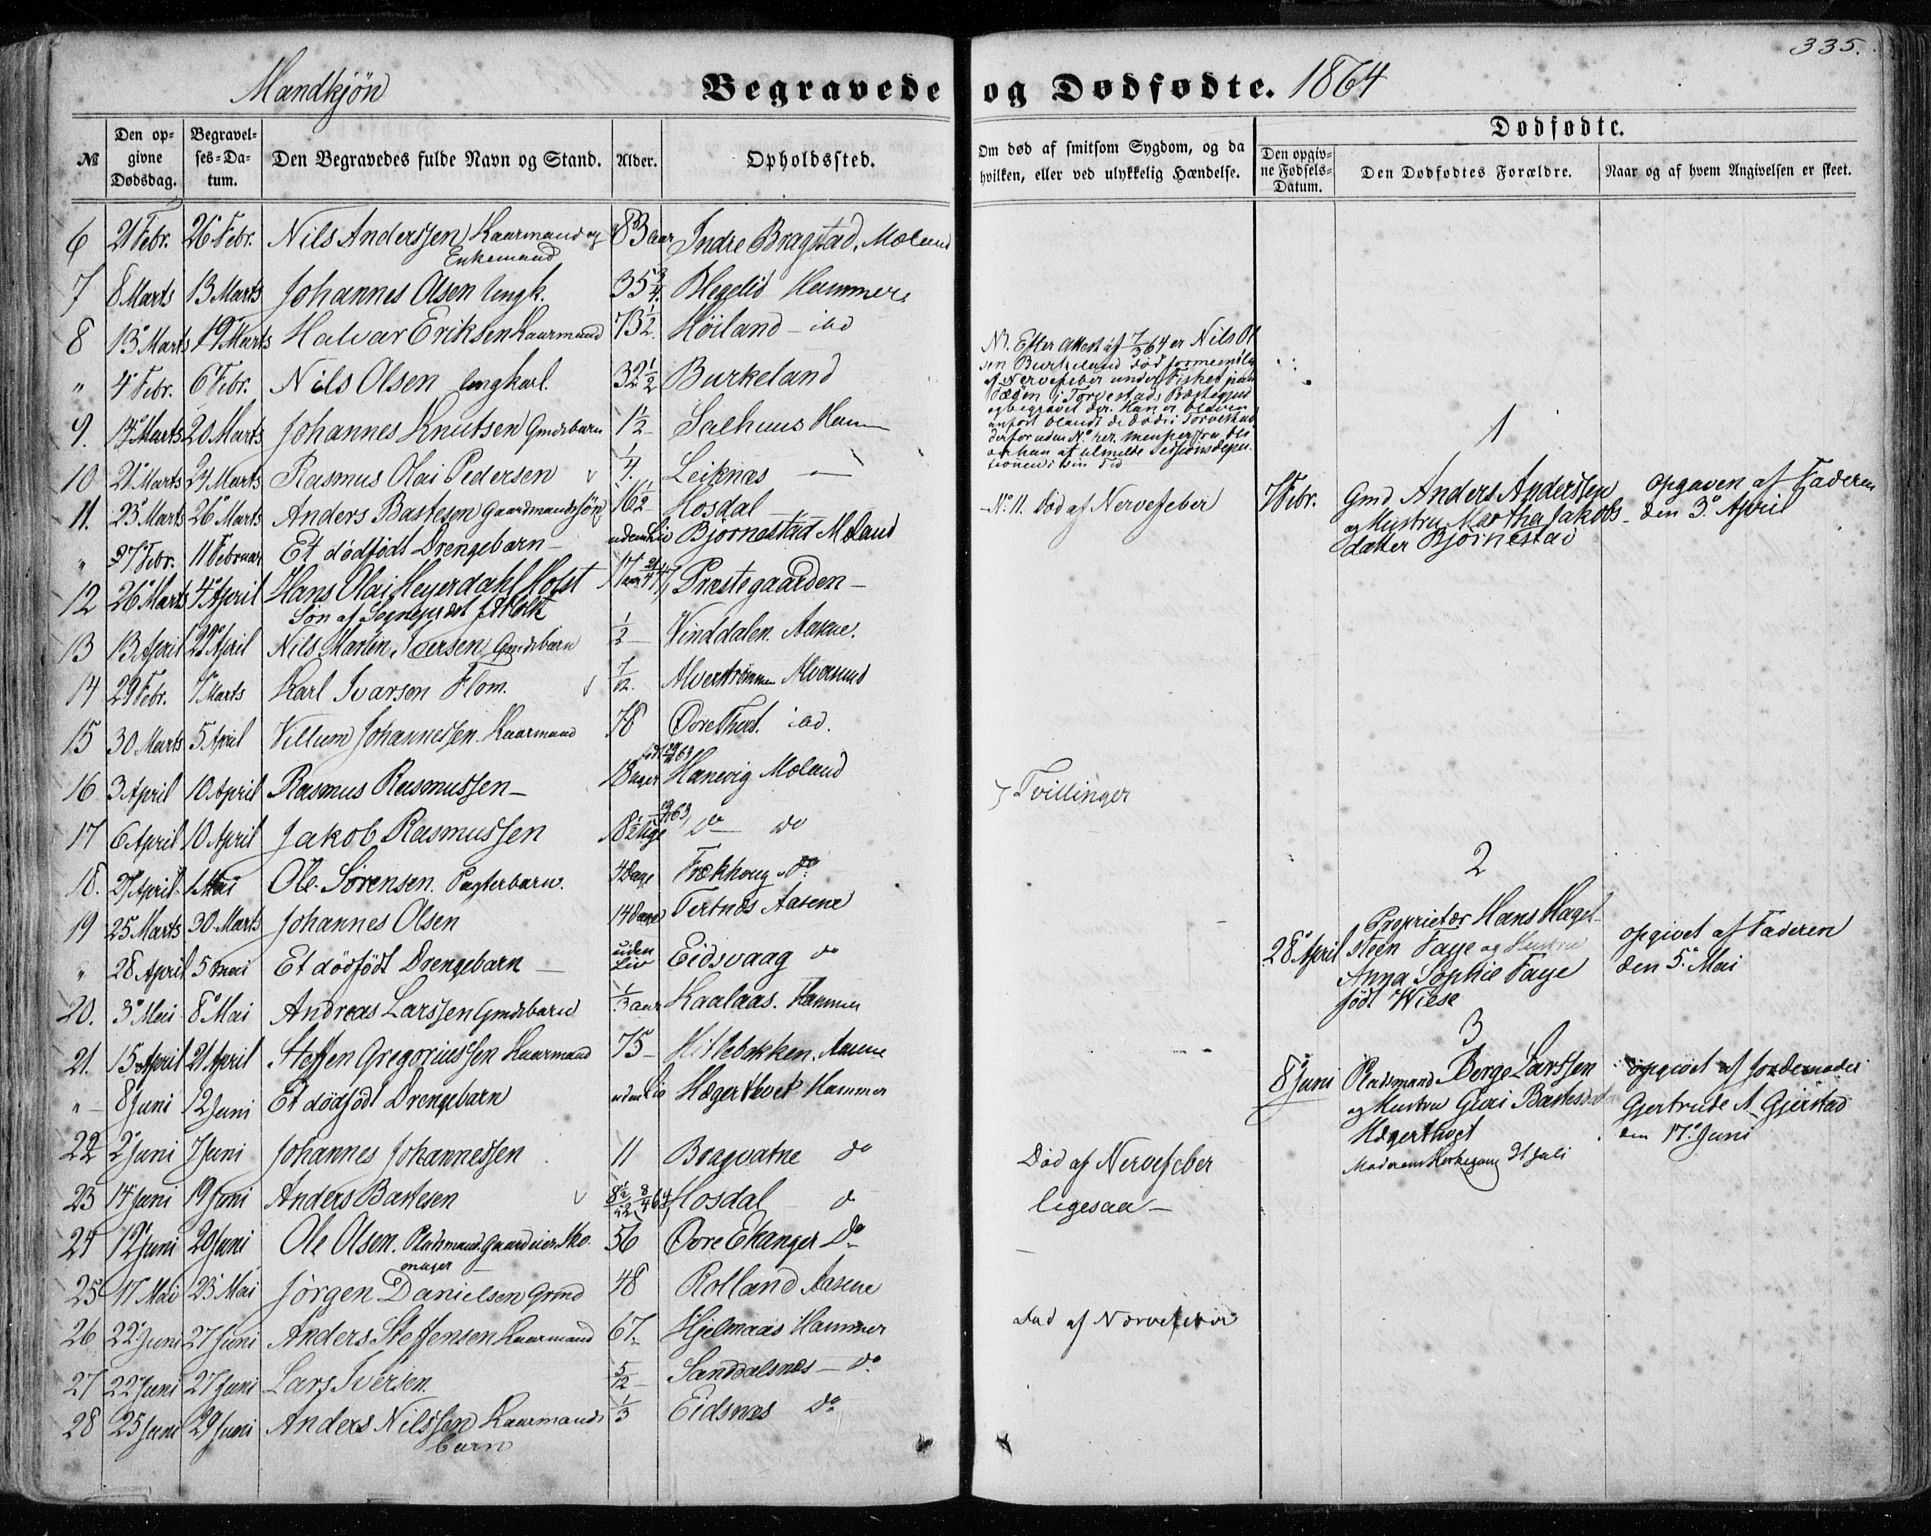 335.
Mandkjøn Begravede og Dødfødte. 1864
№ Den opgivne Dødsdag. Begravelses-Datum. Den Begravedes fulde Navn og Stand. Alder. Opholdssted. Om død af smitsom Sygdom, og da hvilken, eller ved ulykkelig Hændelse. Dødfødte.
Den opgivne Fødsels-Datum. Den Dødfødtes Forældre. Naar og af hvem Angivelsen er skeet.
6 21 Febr. 26 Febr. Nils Anderssen Kaarmand og 83 aar Indre Bragstad, Mæland
Enkemand
7 8 Marts 13 Marts Johannes Olsen Ungk. 35 3/4 Hammer
8 13 Marts 19 Marts Halvar Eriksen Kaarmand 73 1/2 Høiland ibd
" 4 Febr. 6 Febr. Nils Olsen Ungkarl. 32 1/2 Burkeland
Nb. Efter Attest af 7/3 64 er Nils Ol
sen Burkeland død
af Nervefeber under Fisket paa
i Torvestads Præstegjeld
og begravet der. Han er bleven
anført blandt de Døde i Torvestad
derfor uden No her
9. 14 Marts 20 Marts Johannes Knutsen Gmdsbarn 1 1/2 Salhuus Ham
10 21 Marts 24 Marts Rasmus Olai Pedersen 1/4 Leiknæs —
11. 23 Marts 26 Marts Anders Bastesen Gaardmandssøn 16 1/2 Hosdal — No 11. Død af Nervefeber
" 7 Febr. 11 Februar Et dødfødt Drengebarn — uden Liv Bjørnestad Mæland
1
7 Febr. Gmd Anders Anderssen opgaven af Faderen
og Hustru Martha Jakobs- den 3. April
datter Bjørnestad
12 26 Marts 4 April Hans Olai Heyerdahl Holst 17 Præstegaarden —
Søn af Sognepræst Holst
13 13 April 22 April Nils Martin Iversen Gmdsbarn 1/2 Vinddalen. Aasene.
14 29 Febr. 7 Marts Karl Ivarsen Flom. 7/12. Alverstrømmen Alversund
15 30 Marts 5 April Villum Johannessen Kaarmand 78 ibd.
16 3 April 10 April Rasmus Rasmussen — 18 Hanevig Mæland Tvillinger
17 6 April 10 April Jakob Rasmussen do do
18. 27 April 1 Mai Ole Sørensen. Pagterbarn. 4 Dage Frækhoug do
19 25 Marts 30 Marts Johannes Olsen 14 Dage Tertnæs Aasene
" 28 April 5 Mai Et dødfødt Drengebarn — uden Liv Eidsvaag do
2
28 April Proprietær Hans Haget-
steen Faye og Hustru opgivet af Faderen
Anna Sophie Faye den 5. Mai
født Wiese
20. 3 Mai 8 Mai Andreas Larssen Gmdsbarn 1/3 aar Kaalaas. Hammer
21. 15 April 21 April Steffen Gregoriussen Kaarmand 75 — Hitlebakken. Aasene
" 8 Juni 12 Juni Et dødfødt Drengebarn uden Liv Hægertvet Hammer
3
8 Juni Pladsmand Børge Larssen opgivet af Jordemoder
og Hustru Guri Bastesdatter Gjertrude A. Gjerstad
Hægertvet den 17. Juni
Moderens Kirkegang 31 Juli
22 2 Juni 7 Juni Johannes Johannessen 11 Bragvatne do Død af Nervefeber
23 14 Juni 19 Juni Anders Bastesen Hosdal do ligesaa —
24 12 Juni 20 Juni Ole Olsen. Pladsmand, Gaardeier, Sko- 56 Øvre Ekanger do
mager
25 17 Mai 23 Mai Jørgen Danielsen Gmd 48 Rolland Aasene
26 22 Juni 27 Juni Anders Steffensen Kaarmand 67 — Hjelmaas Hammer Død af Nervefeber
27 22 Juni 27 Juni Lars Iversen. 5/12 — Sanddalsnæs — do
28 25 Juni 29 Juni Anders Nilssen Kaarmands 1/3 Eidsnæs do
barn